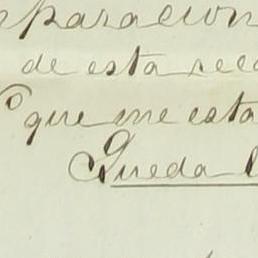 paracion
de esta
que me esta
Queda